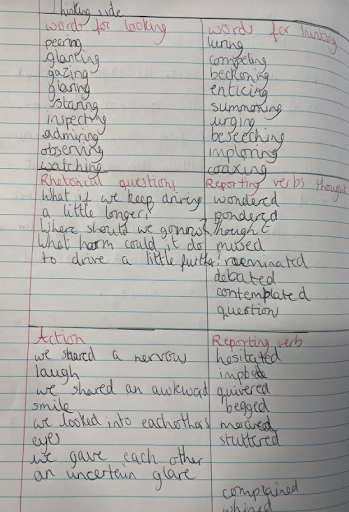 Thinking side
words for looking
peering
glancing
gazing
glaring
staring
inspecting
admiring
observing
watching
words for
luring
compelling
beckoning
enticing
summoning
urging
beseeching
imploring
coaxing
Rhetorical question
what if we keep driving
a little longer?
where should we go now?
what harm could it do
to drive a little further
Reporting verbs thought
wondered
pondered
thought
mused
debated
contemplated
question
Action
we shared a nervous
laugh
we shared an awkward
smile
we looked into eachothers
eyes
we gave each other
an uncertain glare
Reporting verb
hesitated
quivered
begged
stuttered
complained
whined